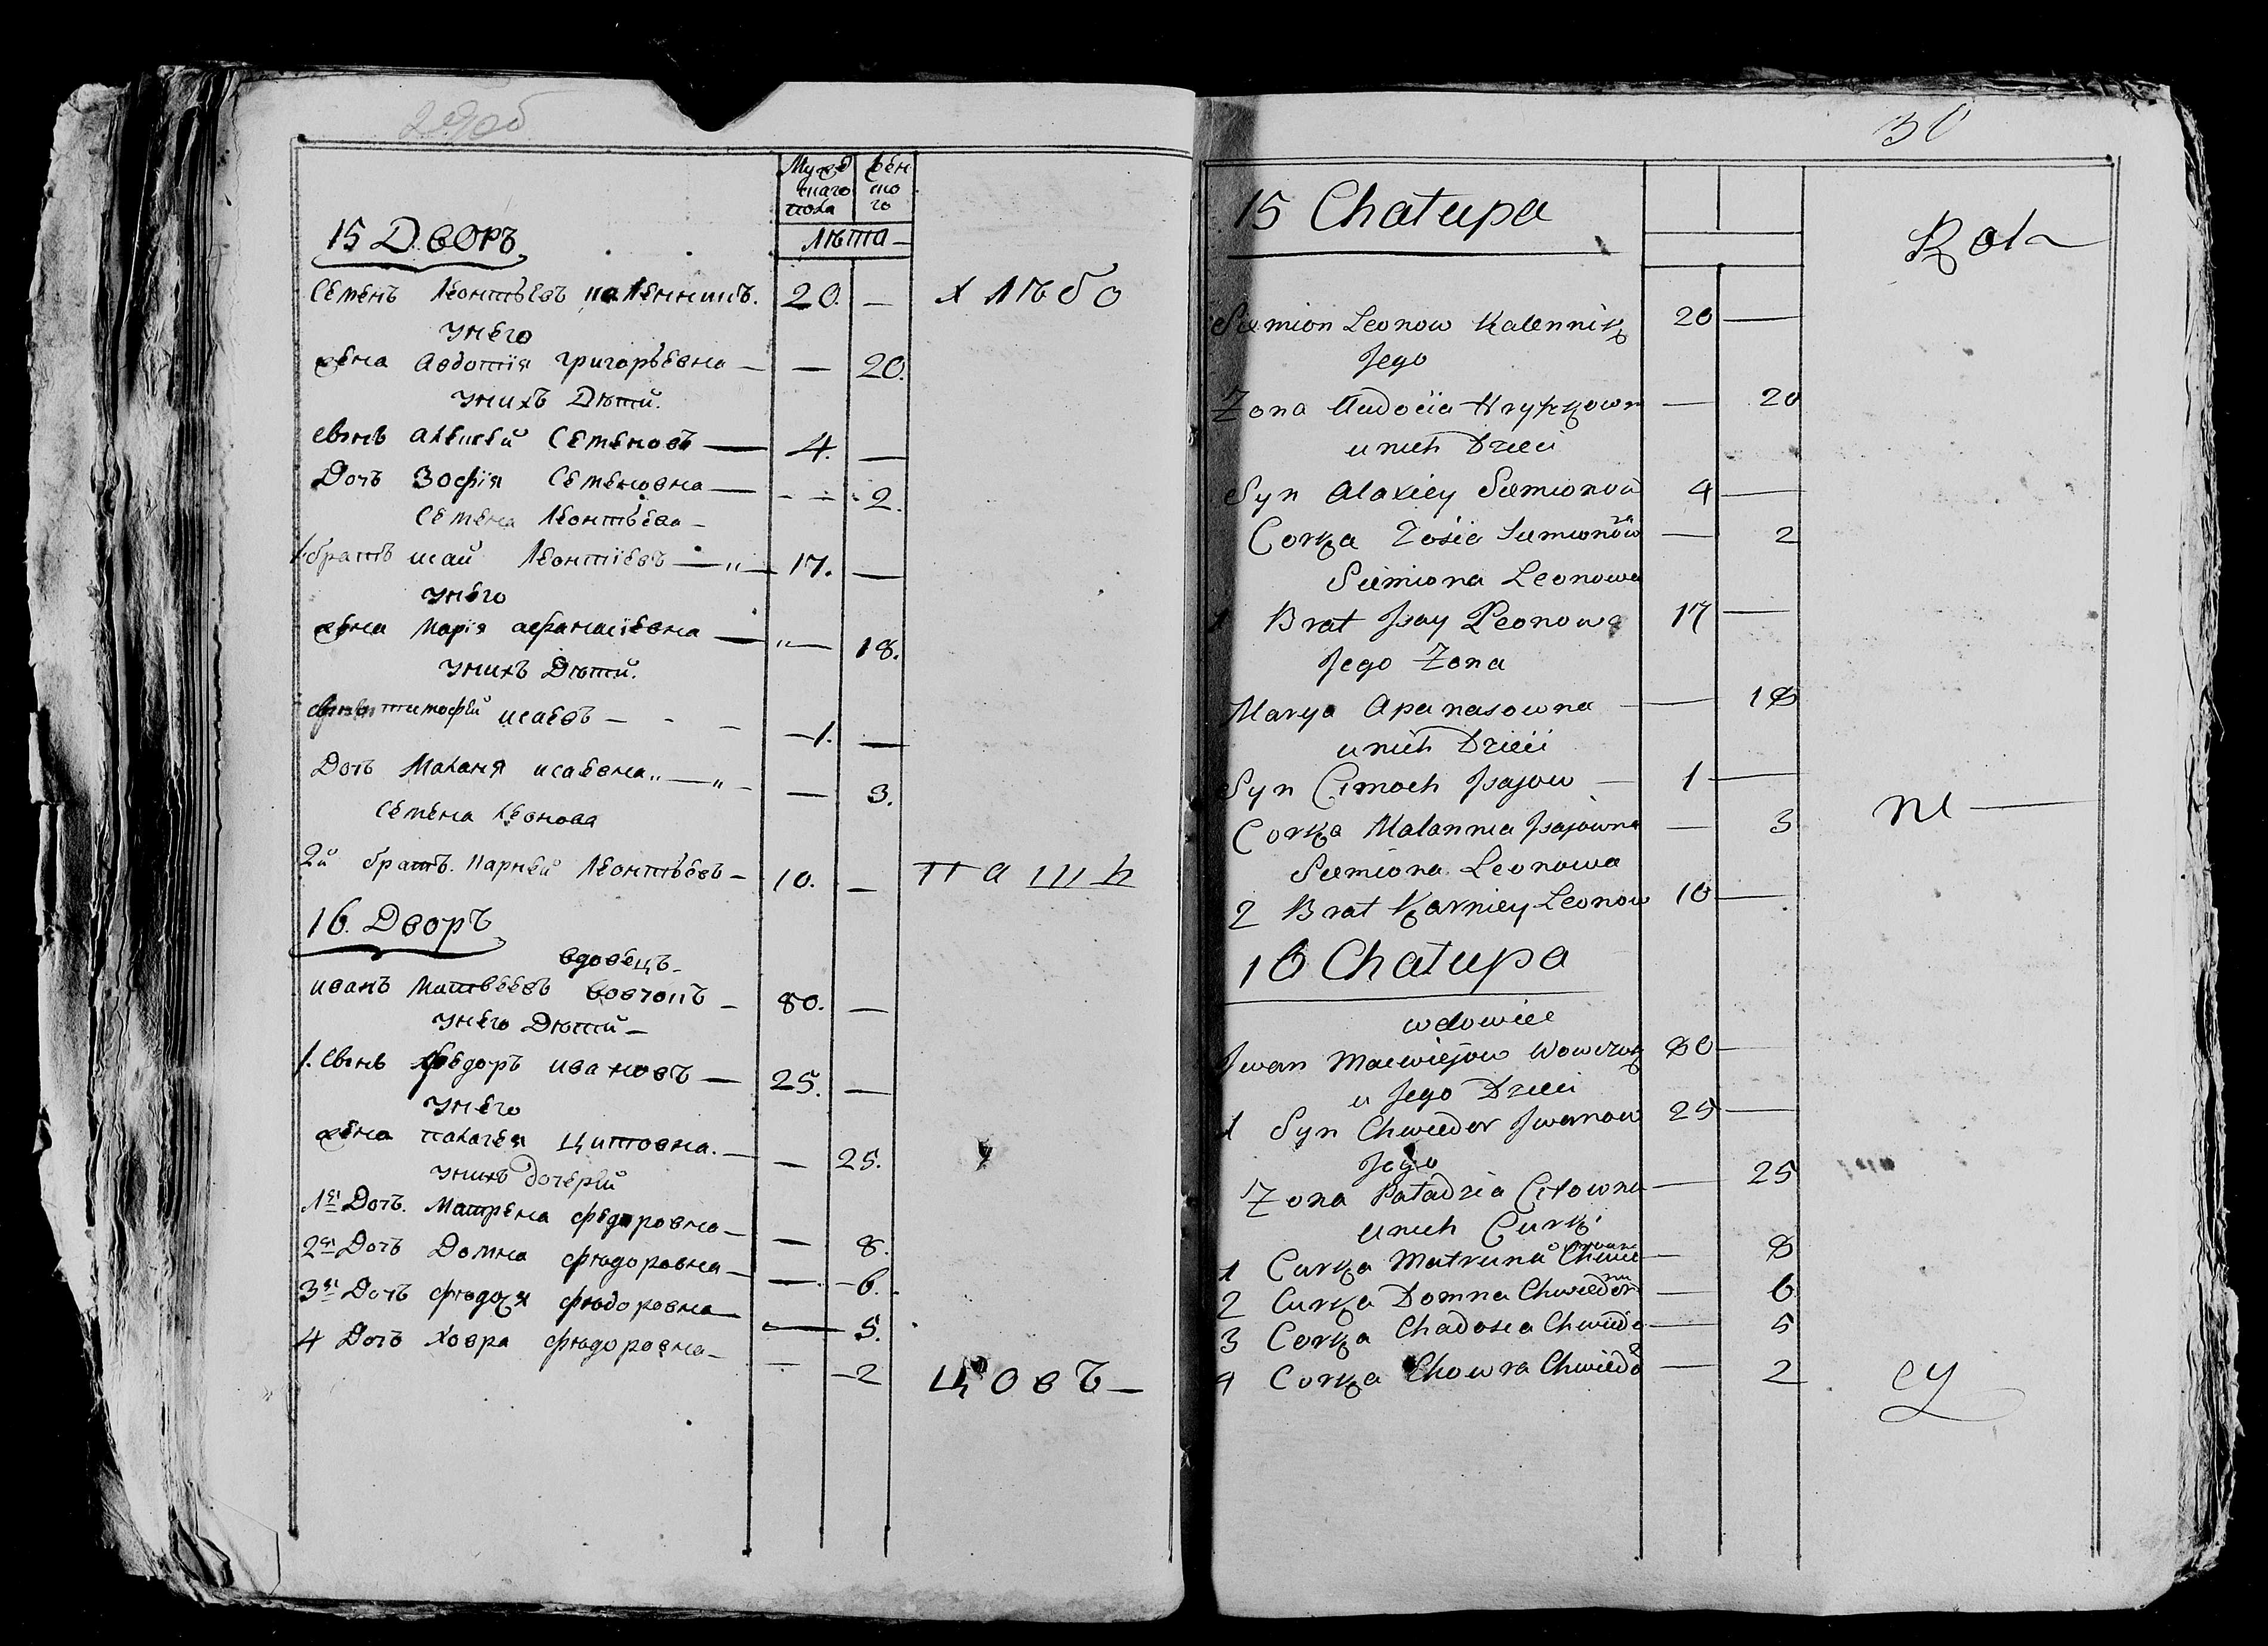 29об
Муже
скаго
пола
жен
ско
го
15 Дворъ
Лѣта
Семенъ Леонтьевъ каленникъ. 20. —
хлѣбо
У него
жена Авдотія григорьевна — — 20.
У нихъ Дѣти.
сынъ алексей Семеновъ — 4. —
Дочь Зофія Семеновна — 2.
Семена Леонтьева —
1. братъ исай Леонтіевъ — 17. —
У него
жена Марія афанасіевна — 18.
У нихъ Дѣти.
сынъ тимофей исаевъ — 1. —
Дочь Маланя исаевна — 3.
Семена Леонова
2й братъ. Карней Леонтьевъ — 10. —
пашь
16. Дворъ
вдовецъ —
иванъ Матвеевъ вовчокъ — 80. —
У него Дѣти —
1. сынъ федоръ ивановъ — 25. —
У него
жена палагея цитовна. — 25.
У нихъ дочерей
1я Дочь. Матрена федоровна — 8.
2я Дочь Домна фѣдоровна — 6.
3я Дочь фѣдося фѣдоровна — 5.
4 Дочь ховра фѣдоровна — 2
цовъ —
30
15 Chałupa
Rol
Siemion Leonow Kalennik 20 —
Jego
Zona Audocia Hryhorowna — 20
u nich Dzieci
Syn Alaxiey Siemionow 4 —
Corka Zosia Siemionow — 2
Siemiona Leonowa
1 Brat Jsay Leonow 17 —
Jego Zona
Marya Apanasowna — 18
u nich Dzieci
Syn Cimoch Jsajow — 1 —
Corka Malannia Jsajowna — 3
ni —
Siemiona Leonowa
2 Brat Karniey Leonow 10 —
16 Chałupa
wdowiec
Jwan Maćwiejow Wowczok 80 —
u Jego Dzieci
1 Syn Chwiedor Jwanow 25 —
Jego
Zona Paładzia Citowna — 25
u nich Curki
1 Curka Matruna Chwie — 8
2 Curka Domna Chwiedor — 6
3 Corka Chadosia Chwiedo — 5
4 Corka Chowra Chwiedo — 2
cy